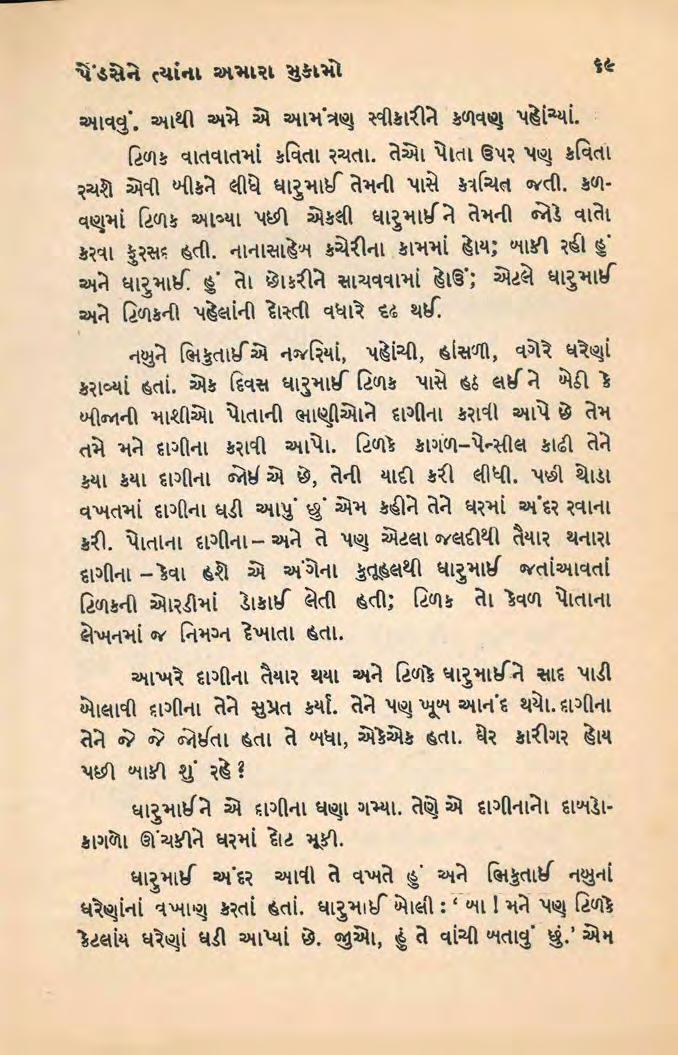 પેંડસેને ત્યાંના અમારા મુકામો ૬૯
આવવું. આથી અમે એ આમંત્રણ સ્વીકારીને કળવણ પહોંચ્યાં.
ટિળક વાતવાતમાં કવિતા રચતા. તેઓ પોતા ઉપર પણ કવિતા
રચશે એવી બીકને લીધે ધારુમાઈ તેમની પાસે કત્રચિત જતી. કળ-
વણમાં ટિળક આવ્યા પછી એકલી ધારુમાઈ ને તેમની જોડે વાતો
કરવા ફુરસદ હતી. નાનાસાહેબ કચેરીના કામમાં હોય; બાકી રહી હું
અને ધારુમાઈ. હું તો છોકરીને સાચવવામાં હોઉં; એટલે ધારુમાઈ
અને ટિળકની પહેલાંની દોસ્તી વધારે દૃઢ થઈ.
નબુને ભિકુતાઈ એ નજરિયાં, પહોંચી, હાંસળી, વગેરે ઘરેણાં
કરાવ્યાં હતાં. એક દિવસ ધારુમાઈ ટિળક પાસે હઠ લઈ ને બેઠી કે
બીજાની માશીઓ પોતાની ભાણીઓને દાગીના કરાવી આપે છે તેમ
તમે મને દાગીના કરાવી આપો. ટિળકે કાગળ–પેન્સીલ કાઢી તેને
કયા કયા દાગીના જોઈ એ છે, તેની યાદી કરી લીધી. પછી થોડા
વખતમાં દાગીના ઘડી આપું છું એમ કહીને તેને ઘરમાં અંદર રવાના
કરી. પોતાના દાગીના – અને તે પણ એટલા જલદીથી તૈયાર થનારા
દાગીના – કેવા હશે એ અંગેના કુતૂહલથી ધારુમાઈ જતાંઆવતાં
ટિળકની ઓરડીમાં ડોકાઈ લેતી હતી; ટિળક તો કેવળ પોતાના
લેખનમાં જ નિમગ્ન દેખાતા હતા.
આખરે દાગીના તૈયાર થયા અને ટિળકે ધારુમાઈ ને સાદ પાડી
બોલાવી દાગીના તેને સુપ્રત કર્યાં. તેને પણ ખૂબ આનંદ થયો. દાગીના
તેને જે જે જોઈતા હતા તે બધા, એકેએક હતા. ઘેર કારીગર હોય
પછી બાકી શું રહે ?
ધારુમાઈ ને એ દાગીના ઘણા ગમ્યા. તેણે એ દાગીનાનો દાબડો-
કાગળો ઊંચકીને ઘરમાં દોટ મૂકી.
ધારુમાઈ અંદર આવી તે વખતે હું અને ભિકુતાઈ નબુનાં
ઘરેણાંનાં વખાણ કરતાં હતાં. ધારુમાઈ બોલી : ‘ બા ! મને પણ ટિળકે
કેટલાંય ઘરેણાં ઘડી આપ્યાં છે. જુઓ, હું તે વાંચી બતાવું છું.’ એમ